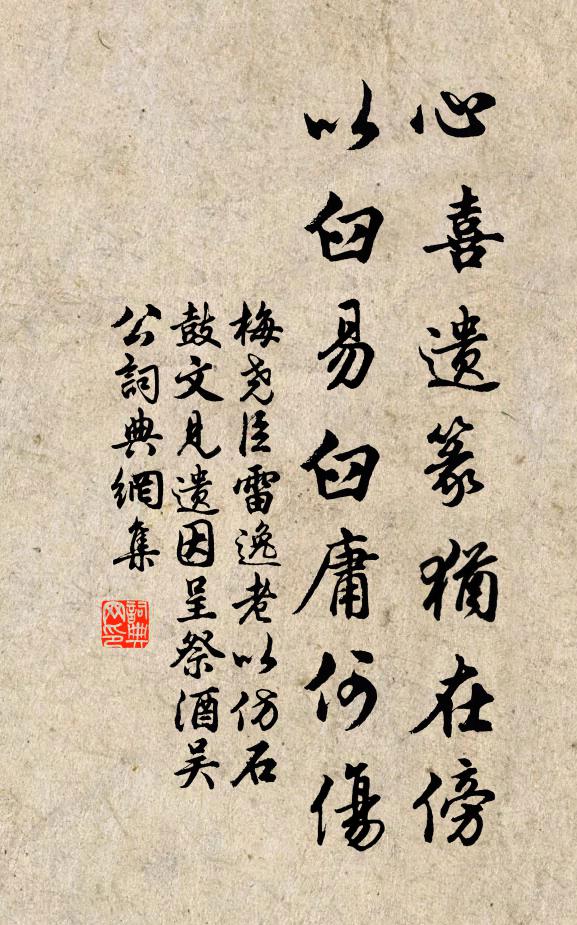 心喜遗篆犹在傍
以臼易臼庸何傷
梅尧臣雷逸老以仿石
鼓文見遗因呈祭酒吴
公詞典網集
詞典网印